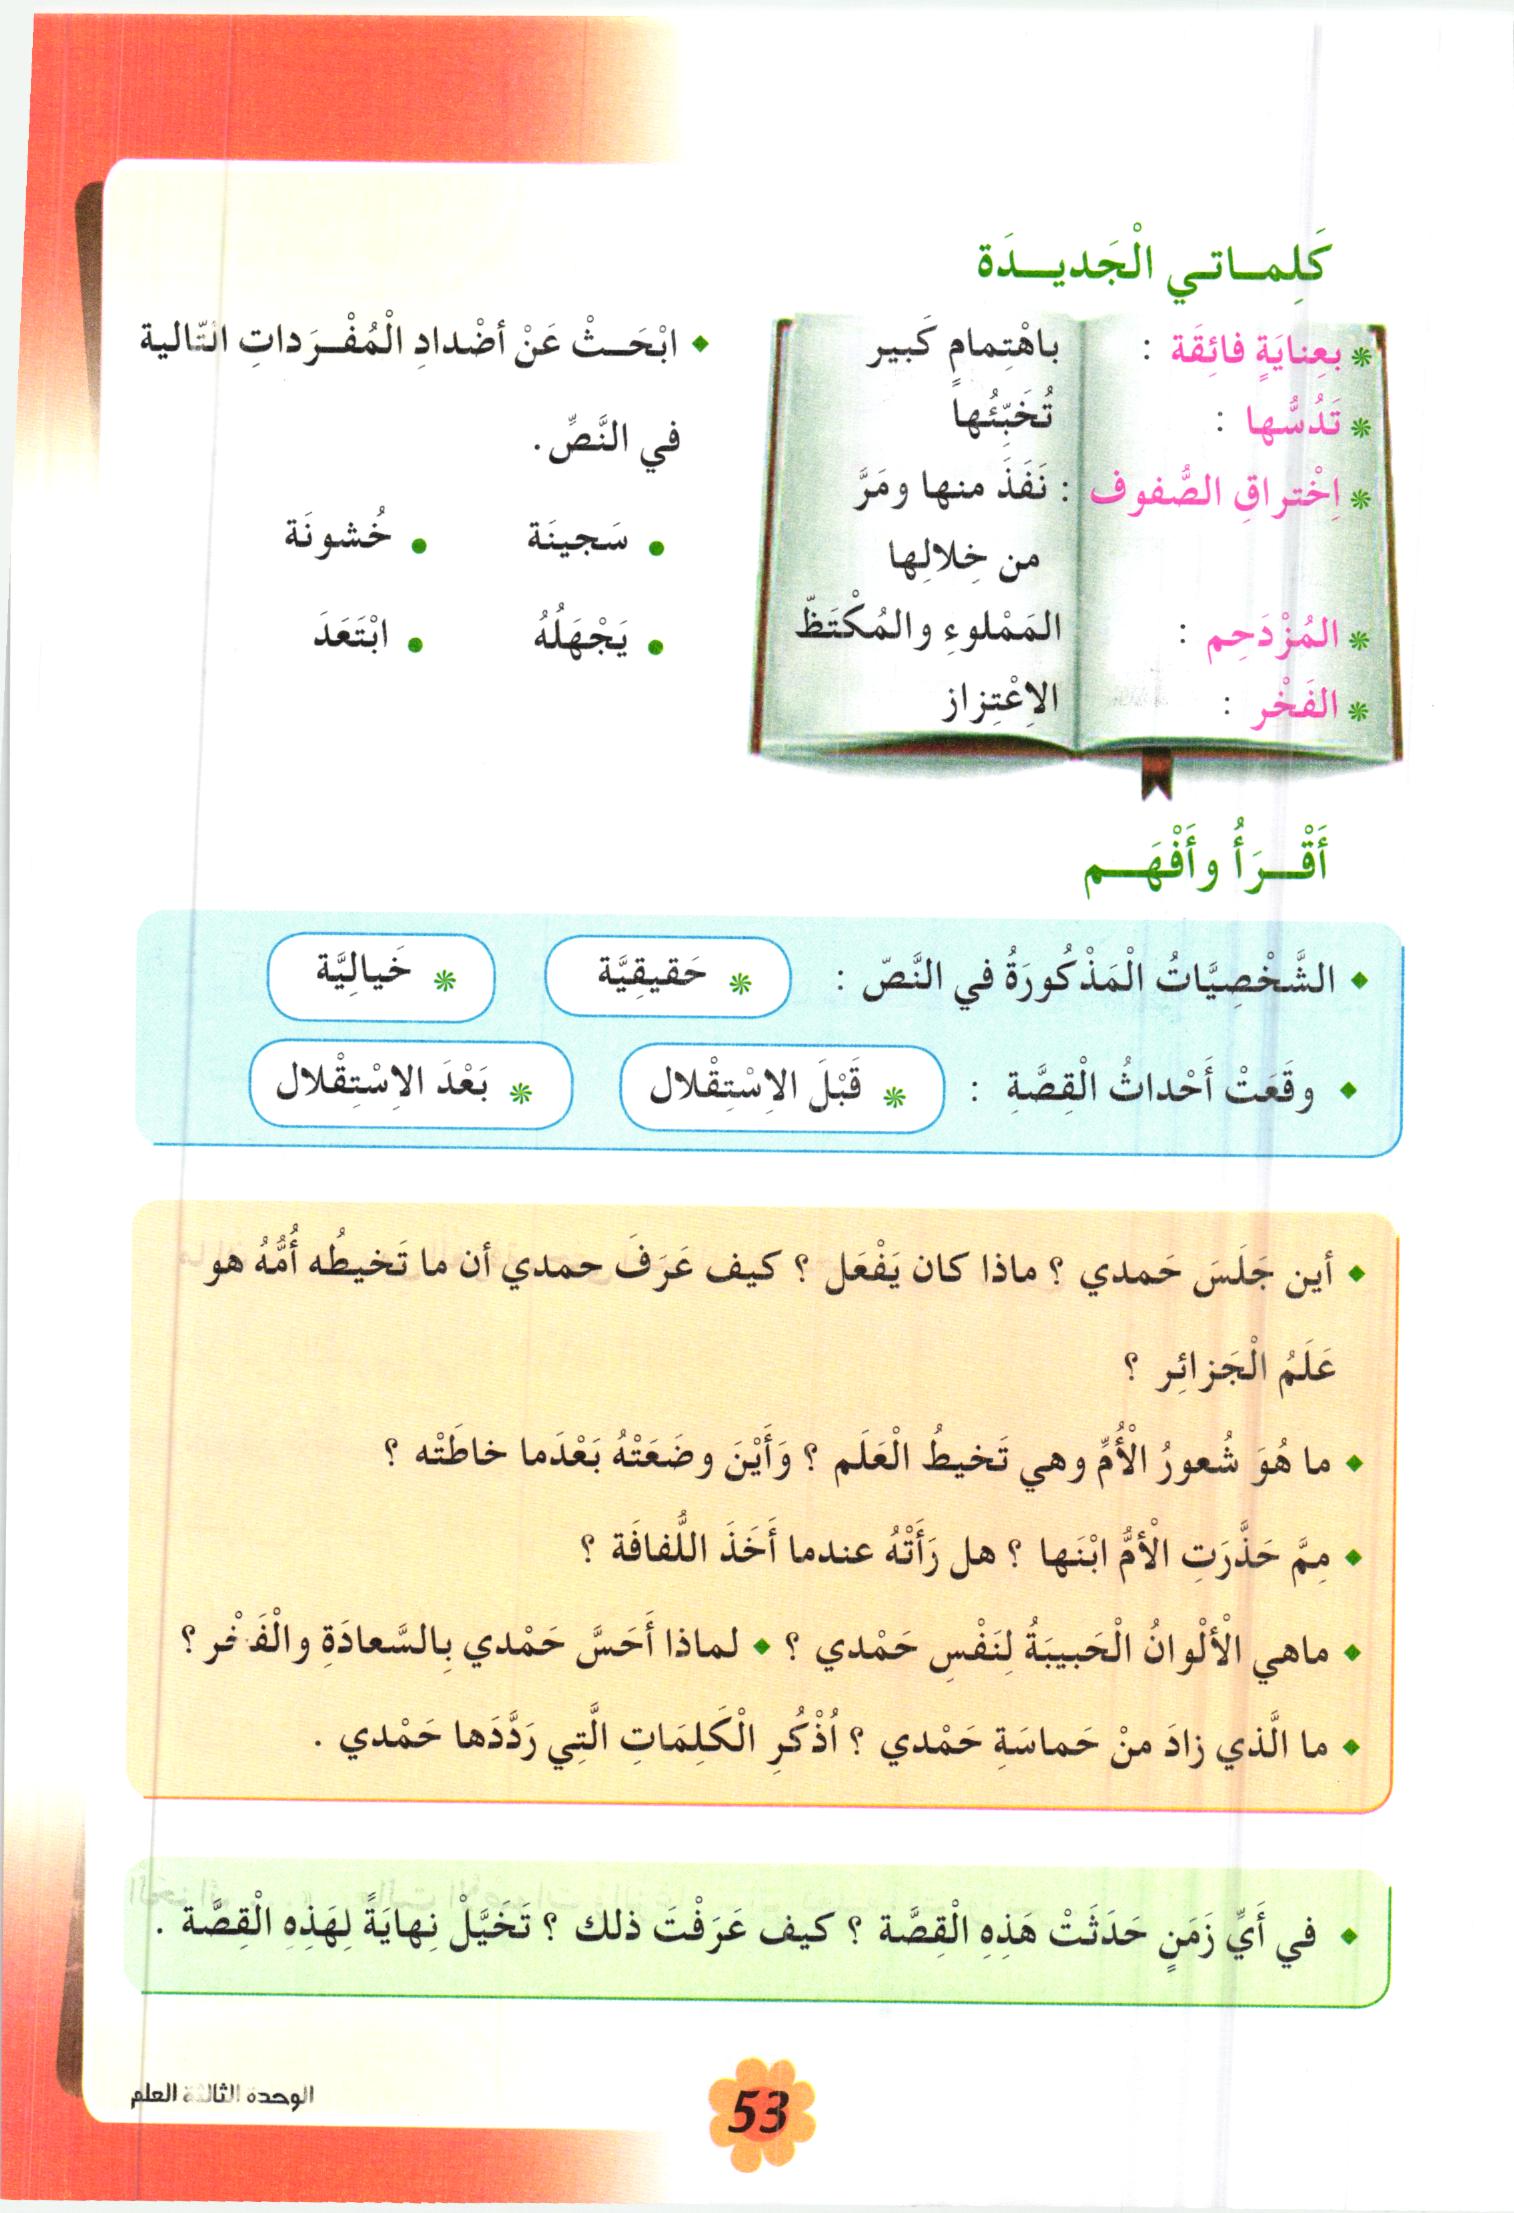 كَلِمـاتي الْجَديـدَة
* بعِنايَةٍ فائِقَة : باهْتِمامٍ كَبير
* تَدُسُّها : تُخَبِّئُها
* اِخْتراقِ الصُّفوف : نَفَذَ منها ومَرَّ
من خِلالِها
* المُزْدَحِم : المَمْلوءِ والمُكْتَظّ
* الفَخْر : الاِعْتِزاز
♦ ابْحَـثْ عَنْ أضْدادِ الْمُفْـرَداتِ التّالية
في النَّصِّ.
• سَجينَة • خُشونَة
• يَجْهَلُهُ • ابْتَعَدَ
أَقْـرَأُ وأَفْهَـم
♦ الشَّخْصِيَّاتُ الْمَذْكُورَةُ في النَّصّ : * حَقيقِيَّة * خَيالِيَّة
♦ وقَعَتْ أَحْداثُ الْقِصَّةِ : * قَبْلَ الاِسْتِقْلال * بَعْدَ الاِسْتِقْلال
♦ أين جَلَسَ حَمدي ؟ ماذا كان يَفْعَل ؟ كيف عَرَفَ حمدي أن ما تَخيطُه أُمُّهُ هو
عَلَمُ الْجَزائِر ؟
♦ ما هُوَ شُعورُ الْأُمِّ وهي تَخيطُ الْعَلَم ؟ وَأَيْنَ وضَعَتْهُ بَعْدَما خاطَتْه ؟
♦ مِمَّ حَذَّرَتِ الْأمُّ ابْنَها ؟ هل رَأَتْهُ عندما أَخَذَ اللُّفافَة ؟
♦ ماهي الْألْوانُ الْحَبيبَةُ لِنَفْسِ حَمْدي ؟ ♦ لماذا أَحَسَّ حَمْدي بِالسَّعادَةِ والْفَخْر ؟
♦ ما الَّذي زادَ منْ حَماسَةِ حَمْدي ؟ اُذْكُرِ الْكَلِمَاتِ الَّتِي رَدَّدَها حَمْدي .
♦ في أَيِّ زَمَنٍ حَدَثَتْ هَذِهِ الْقِصَّة ؟ كيف عَرَفْتَ ذلك ؟ تَخَيَّلْ نِهايَةً لِهَذِهِ الْقِصَّة .
الوحدة الثالثة العلم
53